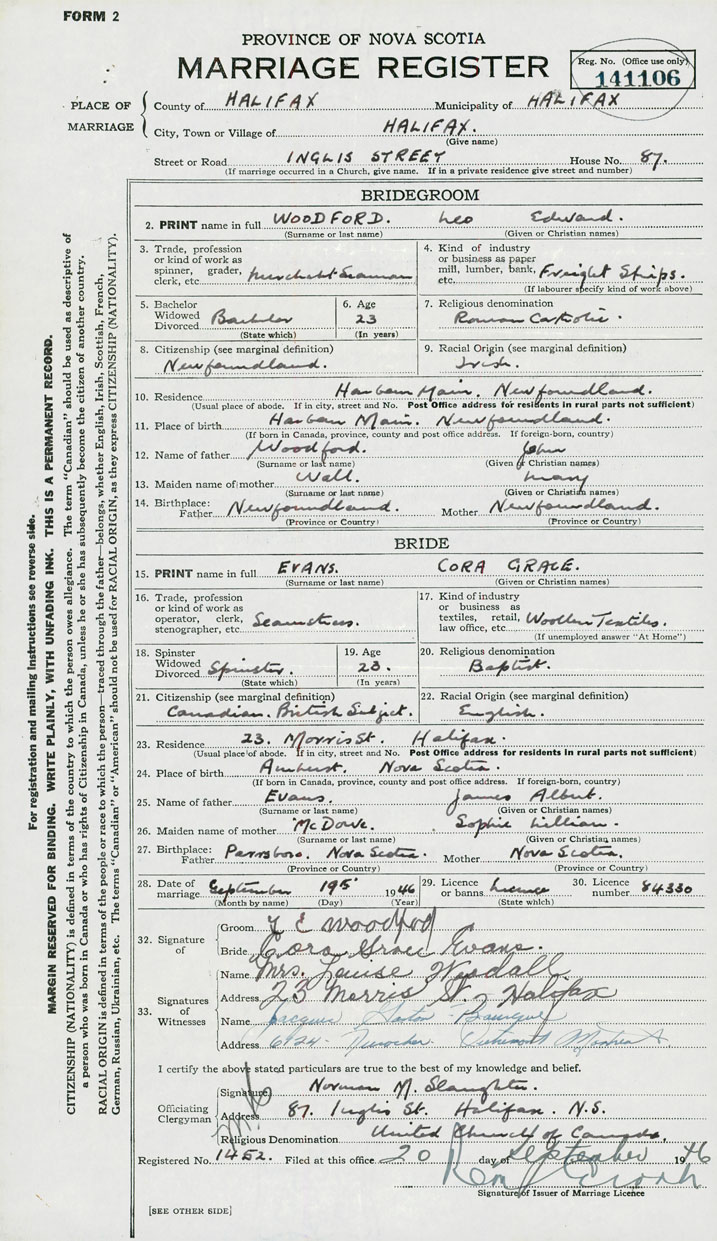 FORM 2
PROVINCE OF NOVA SCOTIA
MARRIAGE REGISTER
Reg. No. (Office use only)
141106
PLACE OF MARRIAGE
County of HALIFAX Municipality of HALIFAX
City, Town or Village of HALIFAX.
(Give name)
Street or Road INGLIS STREET House No. 87.
(If marriage occurred in a Church, give name. If in a private residence give street and number)
BRIDEGROOM
2. PRINT name in full WOODFORD. Leo Edward.
(Surname or last name) (Given or Christian names)
3. Trade, profession or kind of work as spinner, grader, clerk, etc. Merchant Seaman
4. Kind of industry or business as paper mill, lumber, bank, etc. Freight Ships.
(If labourer specify kind of work above)
5. Bachelor Widowed Divorced Bachelor
(State which)
6. Age 23
(In years)
7. Religious denomination Roman Catholic.
8. Citizenship (see marginal definition) Newfoundland.
9. Racial Origin (see marginal definition) Irish.
10. Residence Harbour Main. Newfoundland.
(Usual place of abode. If in city, street and No. Post Office address for residents in rural parts not sufficient)
11. Place of birth Harbour Main. Newfoundland.
(If born in Canada, province, county and post office address. If foreign-born, country)
12. Name of father Woodford. John
(Surname or last name) (Given or Christian names)
13. Maiden name of mother Wall. Mary
(Surname or last name) (Given or Christian names)
14. Birthplace: Father Newfoundland. Mother Newfoundland.
(Province or Country) (Province or Country)
BRIDE
15. PRINT name in full EVANS. CORA GRACE.
(Surname or last name) (Given or Christian names)
16. Trade, profession or kind of work as operator, clerk, stenographer, etc. Seamstress.
17. Kind of industry or business as textiles, retail, law office, etc. Woollen Textiles.
(If unemployed answer "At Home")
18. Spinster Widowed Divorced Spinster.
(State which)
19. Age 23.
(In years)
20. Religious denomination Baptist.
21. Citizenship (see marginal definition) Canadian. British Subject.
22. Racial Origin (see marginal definition) English.
23. Residence 23. Morris St. Halifax.
(Usual place of abode. If in city, street and No. Post Office address for residents in rural parts not sufficient)
24. Place of birth Amherst. Nova Scotia.
(If born in Canada, province, county and post office address. If foreign-born, country)
25. Name of father Evans. James Albert.
(Surname or last name) (Given or Christian names)
26. Maiden name of mother Sophie Lillian.
(Surname or last name) (Given or Christian names)
27. Birthplace: Father Parrsboro. Nova Scotia. Mother Nova Scotia.
(Province or Country) (Province or Country)
28. Date of marriage September 19 1946
(Month by name) (Day) (Year)
29. Licence or banns Licence
(State which)
30. Licence number 84330
32. Signature of
Groom L E Woodford
Bride Cora Grace Evans.
33. Signatures of Witnesses
Name Mrs. Louise
Address 23 Morris St. Halifax
Name Jacques Gaston
Address 6924
I certify the above stated particulars are true to the best of my knowledge and belief.
Officiating Clergyman
Signature Norman M. Slaughter.
Address 87. Inglis St. Halifax. N.S.
Religious Denomination United Church of Canada.
Registered No. 1452. Filed at this office 20 day of September 1946
Signature of Issuer of Marriage Licence
[SEE OTHER SIDE]
For registration and mailing instructions see reverse side.
MARGIN RESERVED FOR BINDING. WRITE PLAINLY, WITH UNFADING INK. THIS IS A PERMANENT RECORD.
CITIZENSHIP (NATIONALITY) is defined in terms of the country to which the person owes allegiance. The term "Canadian" should be used as descriptive of
a person who was born in Canada or who has rights of Citizenship in Canada, unless he or she has subsequently become the citizen of another country.
RACIAL ORIGIN is defined in terms of the people or race to which the person—traced through the father—belongs, whether English, Irish, Scottish, French,
German, Russian, Ukrainian, etc. The terms "Canadian" or "American" should not be used for RACIAL ORIGIN, as they express CITIZENSHIP (NATIONALITY).